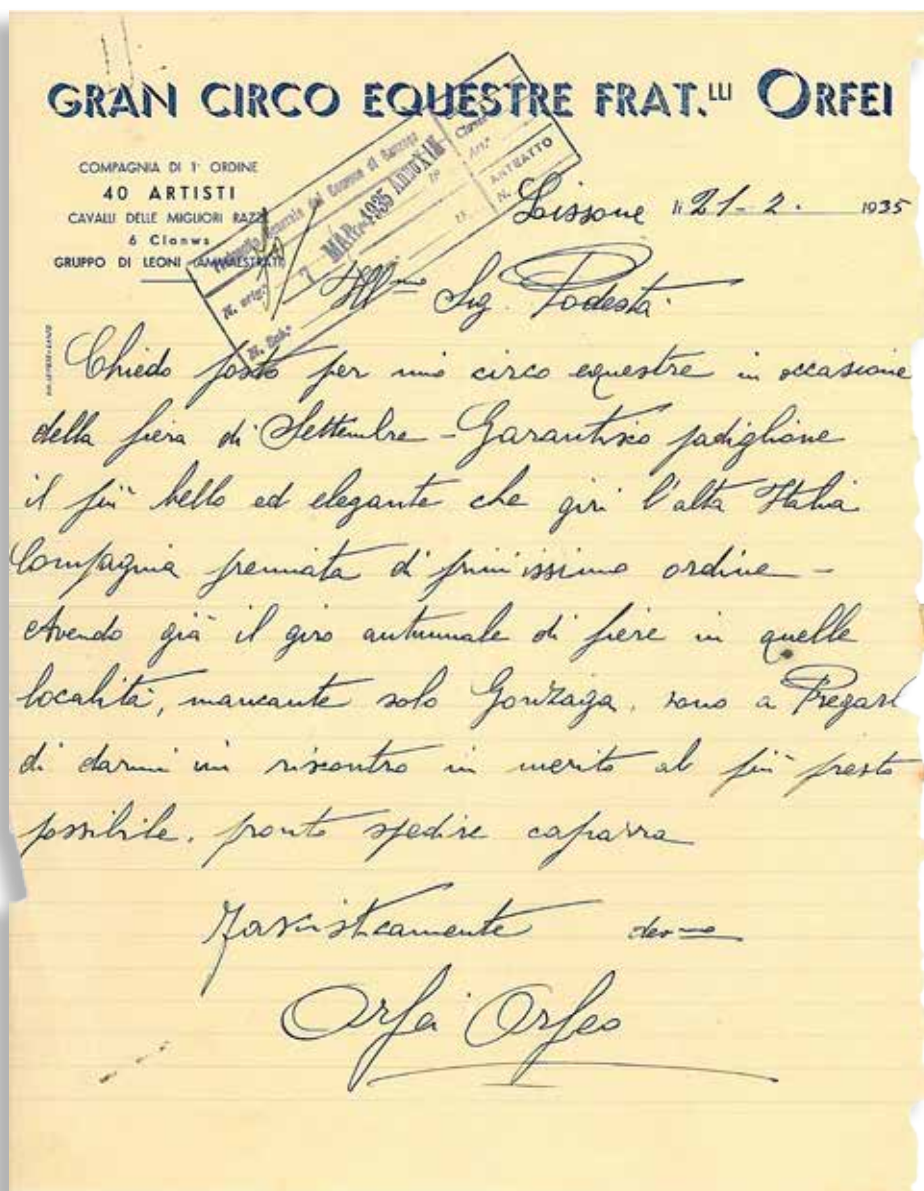 GRAN CIRCO EQUESTRE FRAT.LLI ORFEI
COMPAGNIA DI 1° ORDINE
40 ARTISTI
CAVALLI DELLE MIGLIORI RAZZE
6 Clanws
GRUPPO DI LEONI (AMMAESTRATI)
Protocollo Generale del Comune di Gonzaga
7 MAR. 1935 ANNO XIII
N. arriv.
ANTEFATTO
N.
Lissone li 21-2. 1935
Ill.mo Sig. Podestà.
Chiedo posto per mio circo equestre in occasione
della fiera di Settembre - Garantisco padiglione
il più bello ed elegante che giri l'alta Italia
Compagnia premiata di primissimo ordine -
Avendo già il giro autunnale di fiere in quelle
località, mancante solo Gonzaga, sono a Pregarl
di darmi un riscontro in merito al più presto
possibile. pronto spedire caparra
Fascisticamente dev.mo
Orfei Orfeo